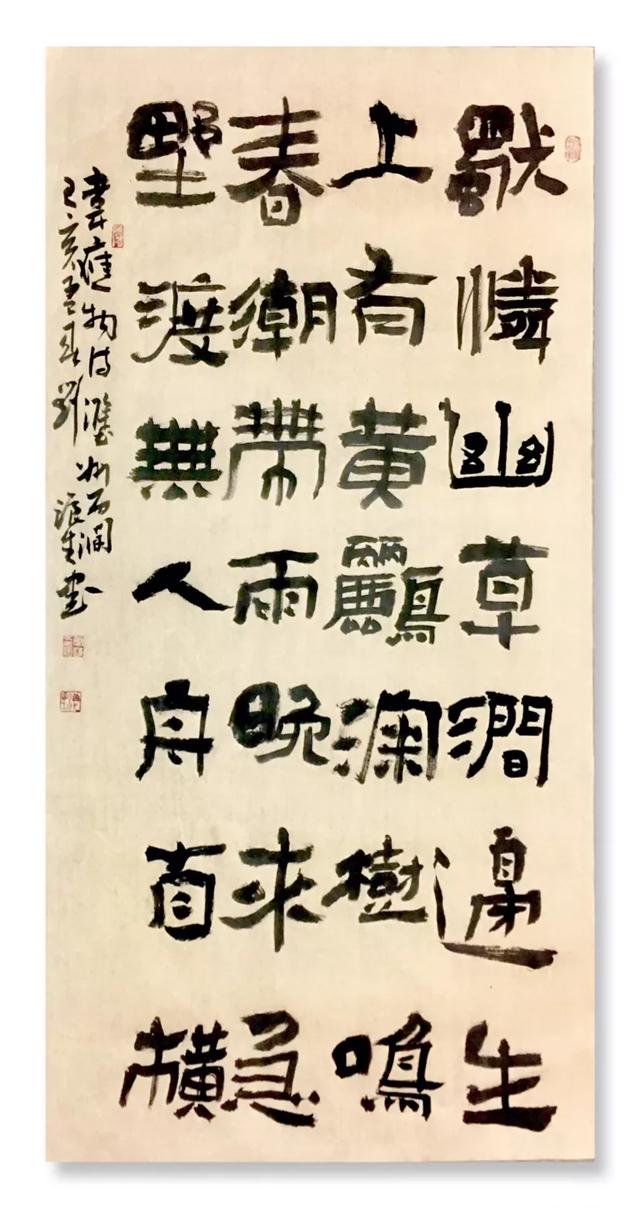 獨憐幽草澗邊生
上有黄鸝深樹鳴
春潮帶雨晚來急
野渡無人舟自横
韋應物詩滁州西澗
己亥孟春劉浪生书